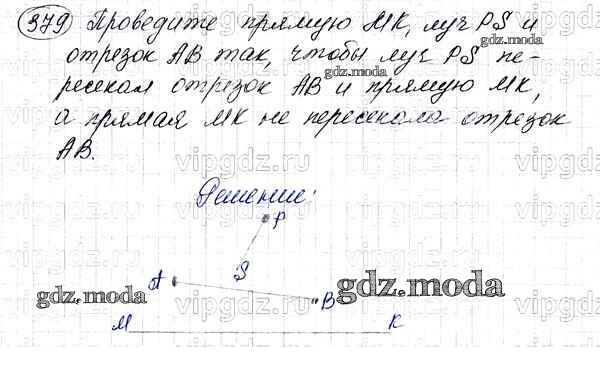 379 Проведите прямую МК, луч PS и
отрезок АВ так, чтобы луч PS пе-
ресекал отрезок АВ и прямую МК,
а прямая МК не пересекала отрезок
АВ.
Решение:
P
S
A
B
M K
gdz.moda
gdz.moda
gdz.moda
gdz.moda
vipgdz.ru